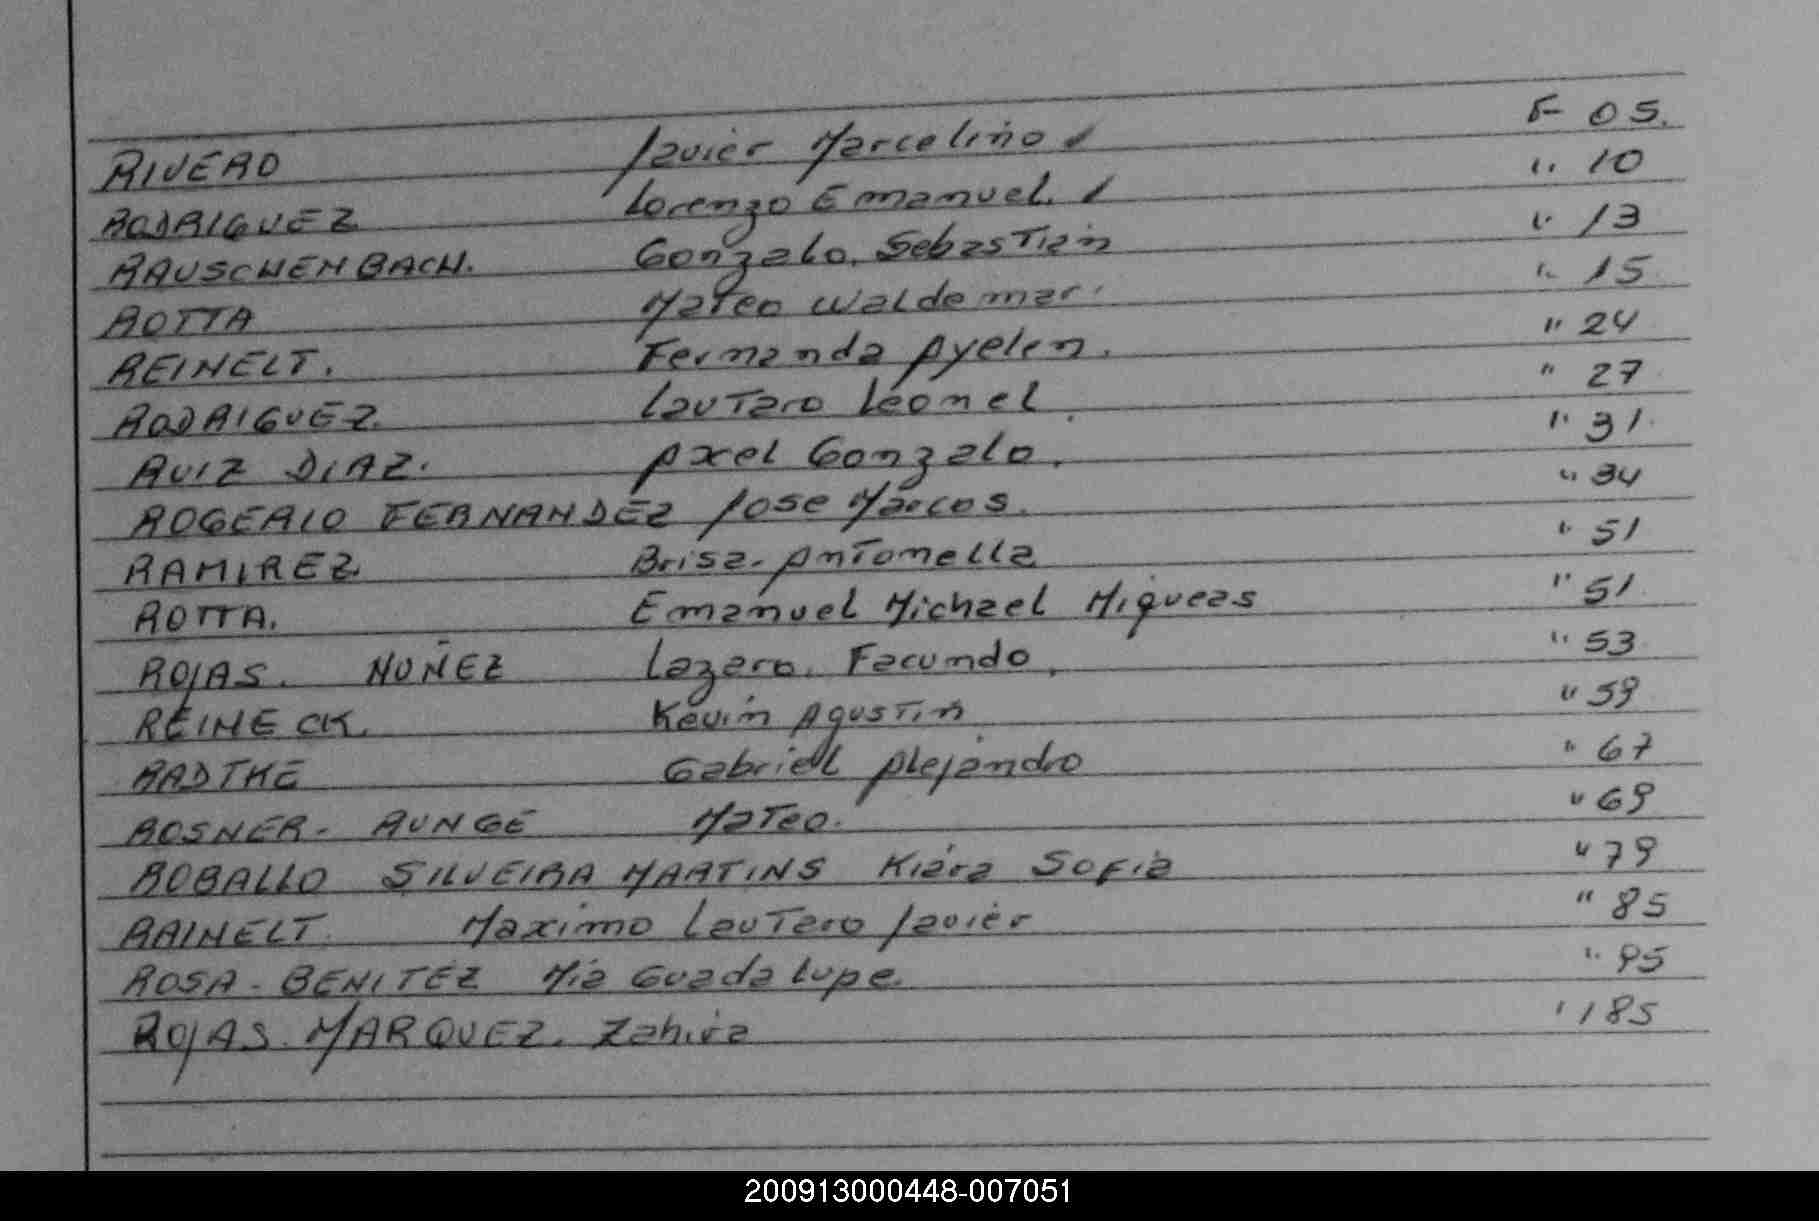 RIVERO Javier Marcelino F 05.
RODRIGUEZ Lorenzo Emanuel. " 10
RAUSCHENBACH. Gonzalo. Sebastian " 13
ROTTA Mateo Waldemar. " 15
REINELT. Fernanda Ayelen. " 24
RODRIGUEZ. Lautaro Leonel. " 27
RUIZ DIAZ. Axel Gonzalo. " 31.
ROGERIO FERNANDEZ Jose Marcos. " 34
RAMIREZ Brisa. Antonella " 51
ROTTA. Emanuel Michael Miqueas " 51
ROJAS. NUÑEZ Lazaro. Facundo. " 53
REINECK. Kevin Agustin " 59
RADTKE Gabriel Alejandro " 67
ROSNER - RUNGE Mateo. " 69
ROBALLO SILVEIRA MARTINS Kiara Sofia " 79
RAINELT. Maximo Lautaro Javier " 85
ROSA - BENITEZ Mia Guadalupe. " 95
ROJAS. MARQUEZ. Zahira " 185
200913000448-007051